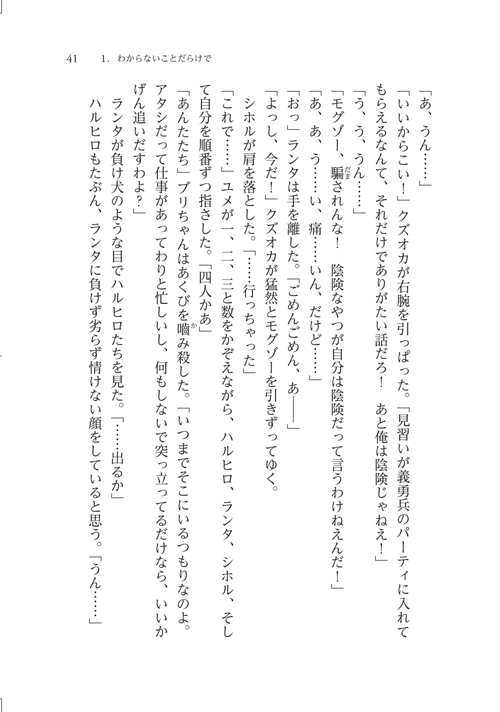 41　1．わからないことだらけで
「あ、うん……」
「いいからこい！」クズオカが右腕を引っぱった。「見習いが義勇兵のパーティに入れて
もらえるなんて、それだけでありがたい話だろ！　あと俺は陰険じゃねえ！」
「う、う、うん……」
「モグゾー、騙されんな！　陰険なやつが自分は陰険だって言うわけねえんだ！」
「あ、あ、う……い、痛……いん、だけど……」
「おっ」ランタは手を離した。「ごめんごめん、あ――」
「よっし、今だ！」クズオカが猛然とモグゾーを引きずってゆく。
シホルが肩を落とした。「……行っちゃった」
「これで……」ユメが一、二、三と数をかぞえながら、ハルヒロ、ランタ、シホル、そし
て自分を順番ずつ指さした。「四人かあ」
「あんたたち」ブリちゃんはあくびを嚙み殺した。「いつまでそこにいるつもりなのよ。
アタシだって仕事があってわりと忙しいし、何もしないで突っ立ってるだけなら、いいか
げん追いだすわよ？」
ランタが負け犬のような目でハルヒロたちを見た。「……出るか」
ハルヒロもたぶん、ランタに負けず劣らず情けない顔をしていると思う。「うん……」